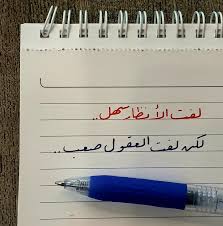 لفت الأنظار سهل..
لكن لفت العقول صعب..